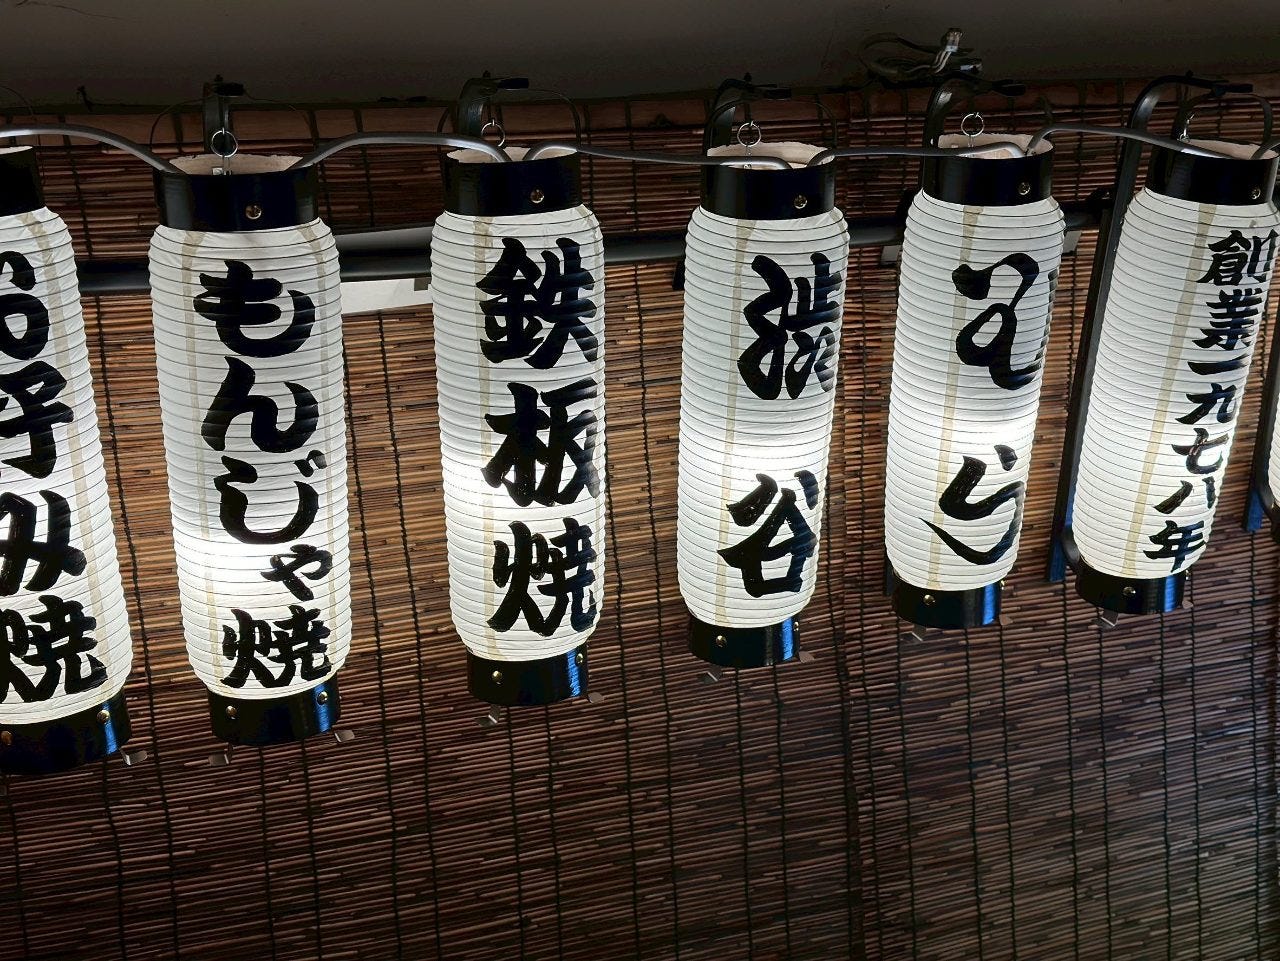 お好み焼
もんじゃ焼
鉄板焼
渋谷
創業一九七八年